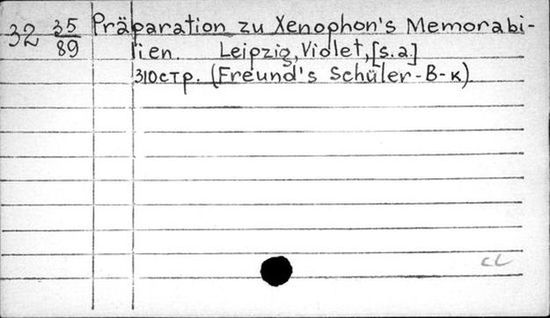 32 35/89 Präparation zu Xenophon's Memorabi-
lien. Leipzig, Violet, [s.a.]
310стр. (Freund's Schüler-B-к)